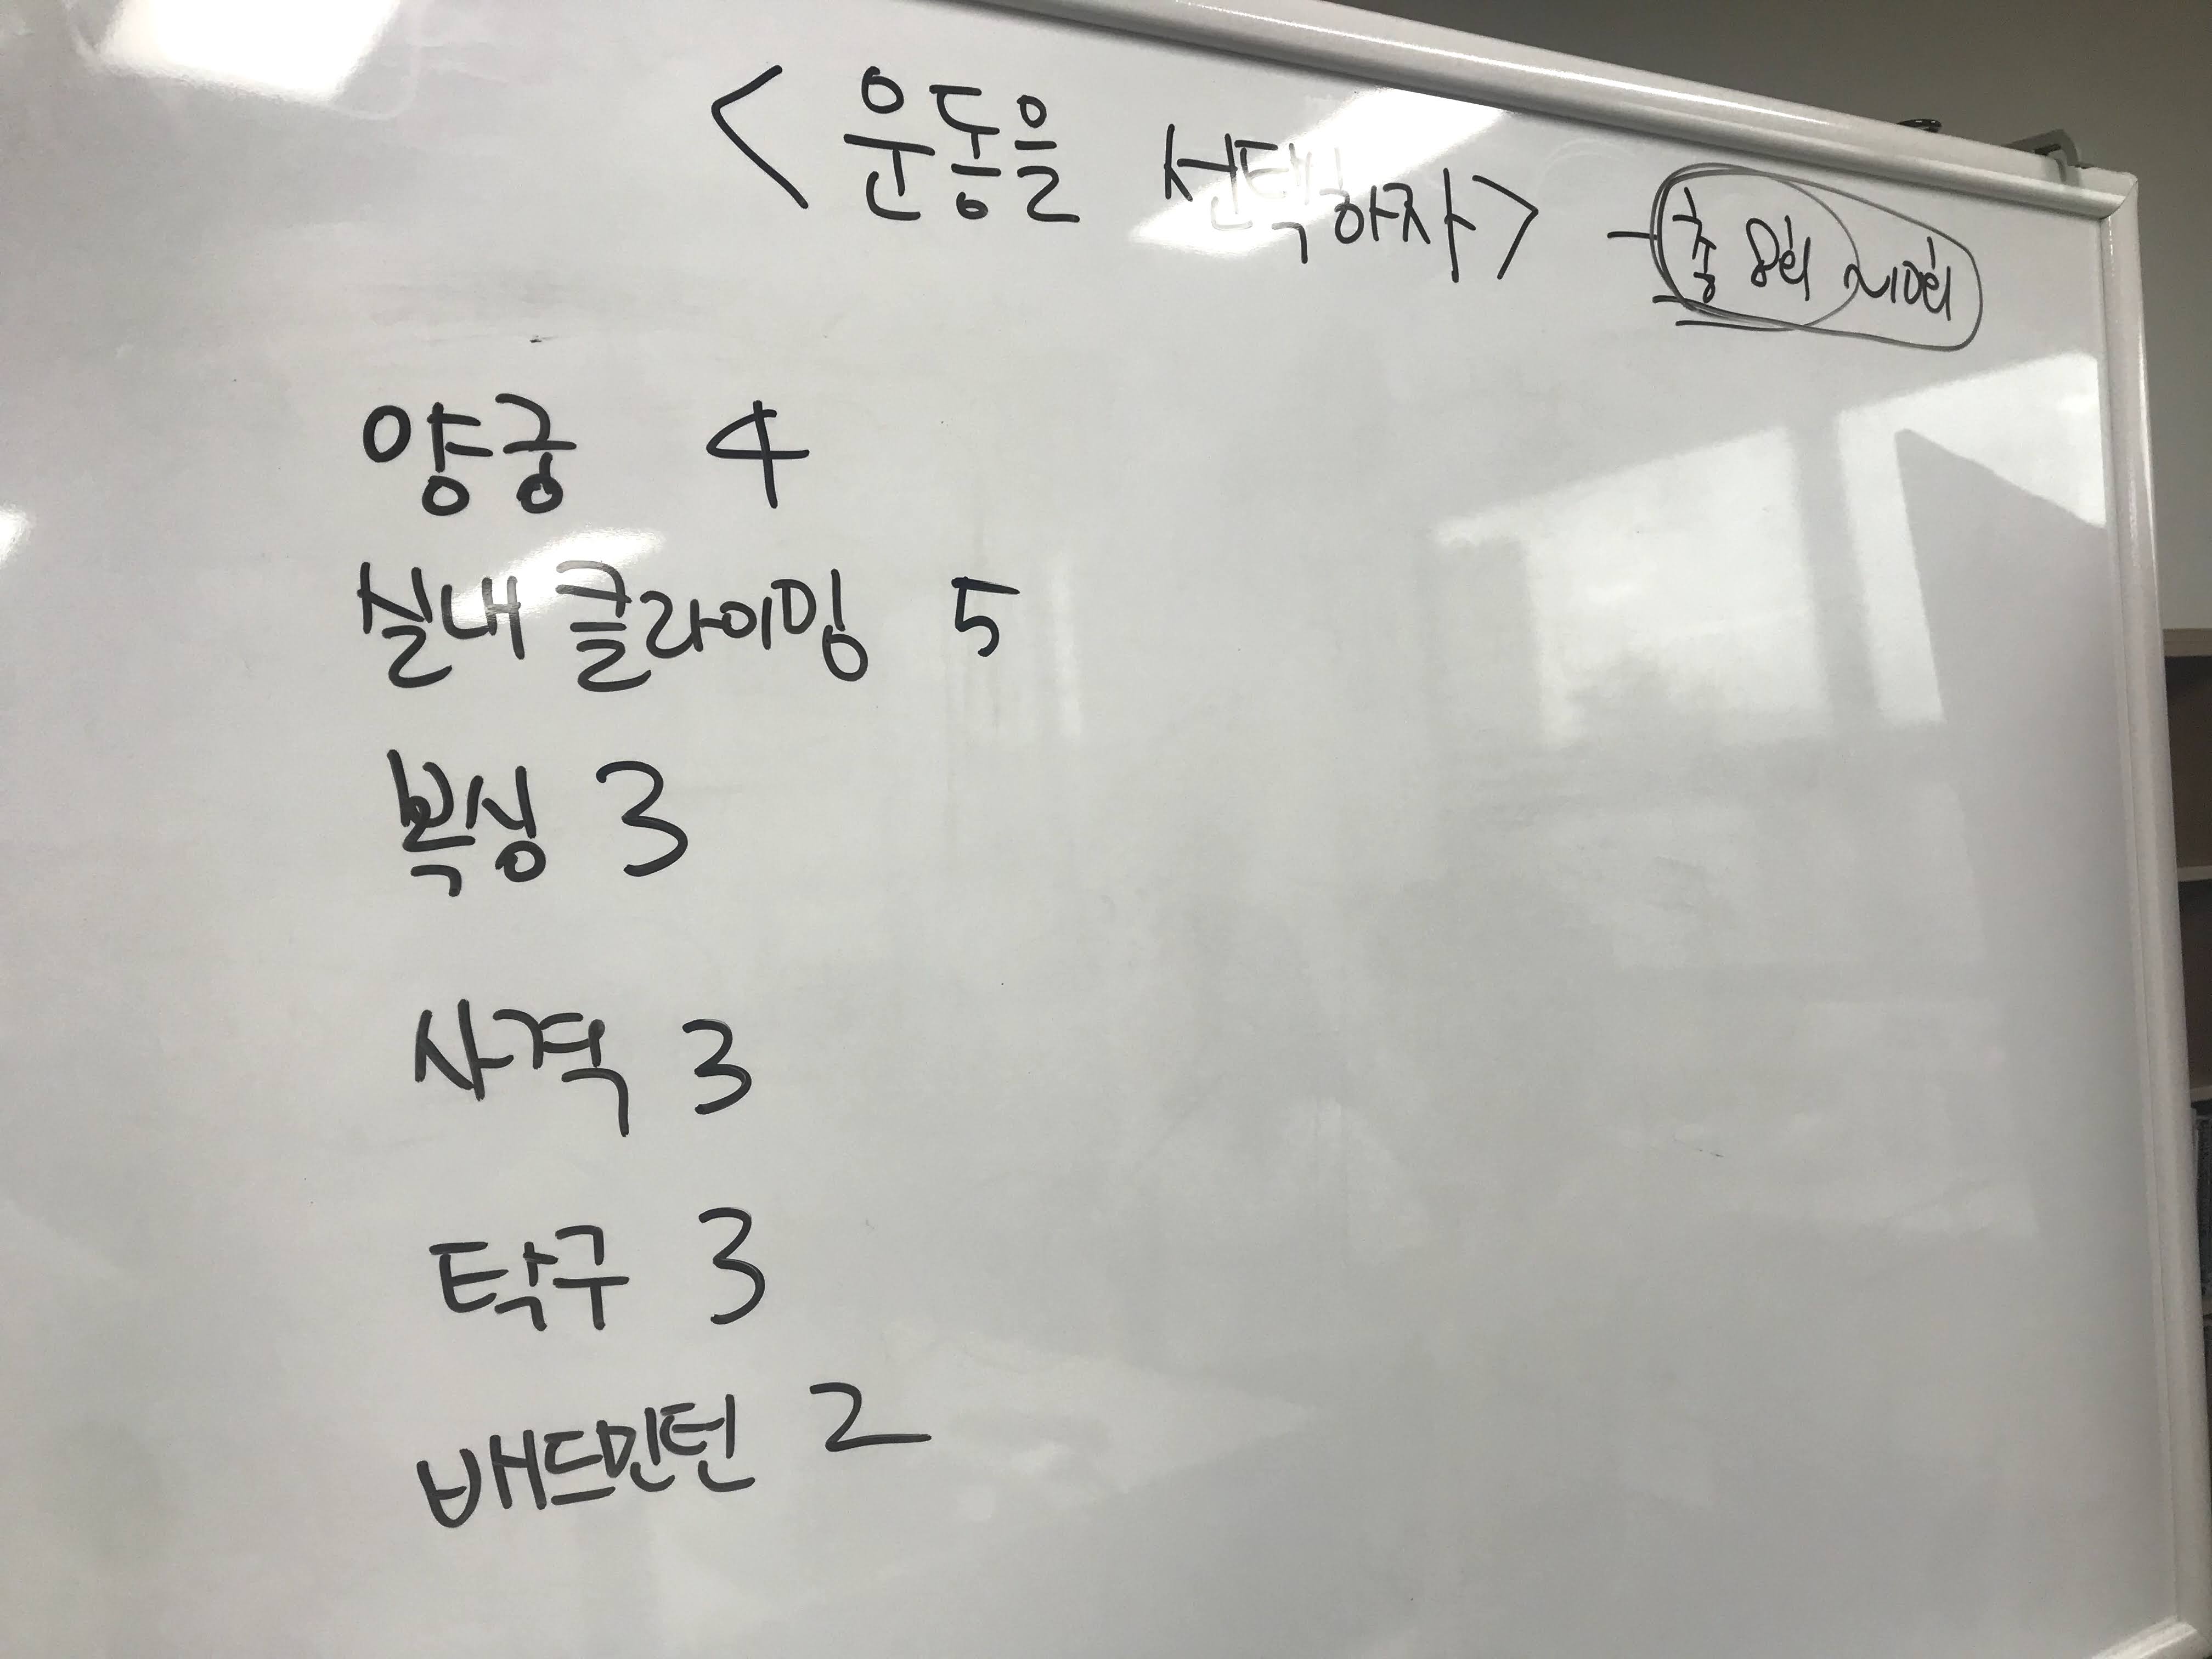 <운동을 선택하자> - 총 8회 ~10회
양궁 4
실내 클라이밍 5
복싱 3
사격 3
탁구 3
배드민턴 2